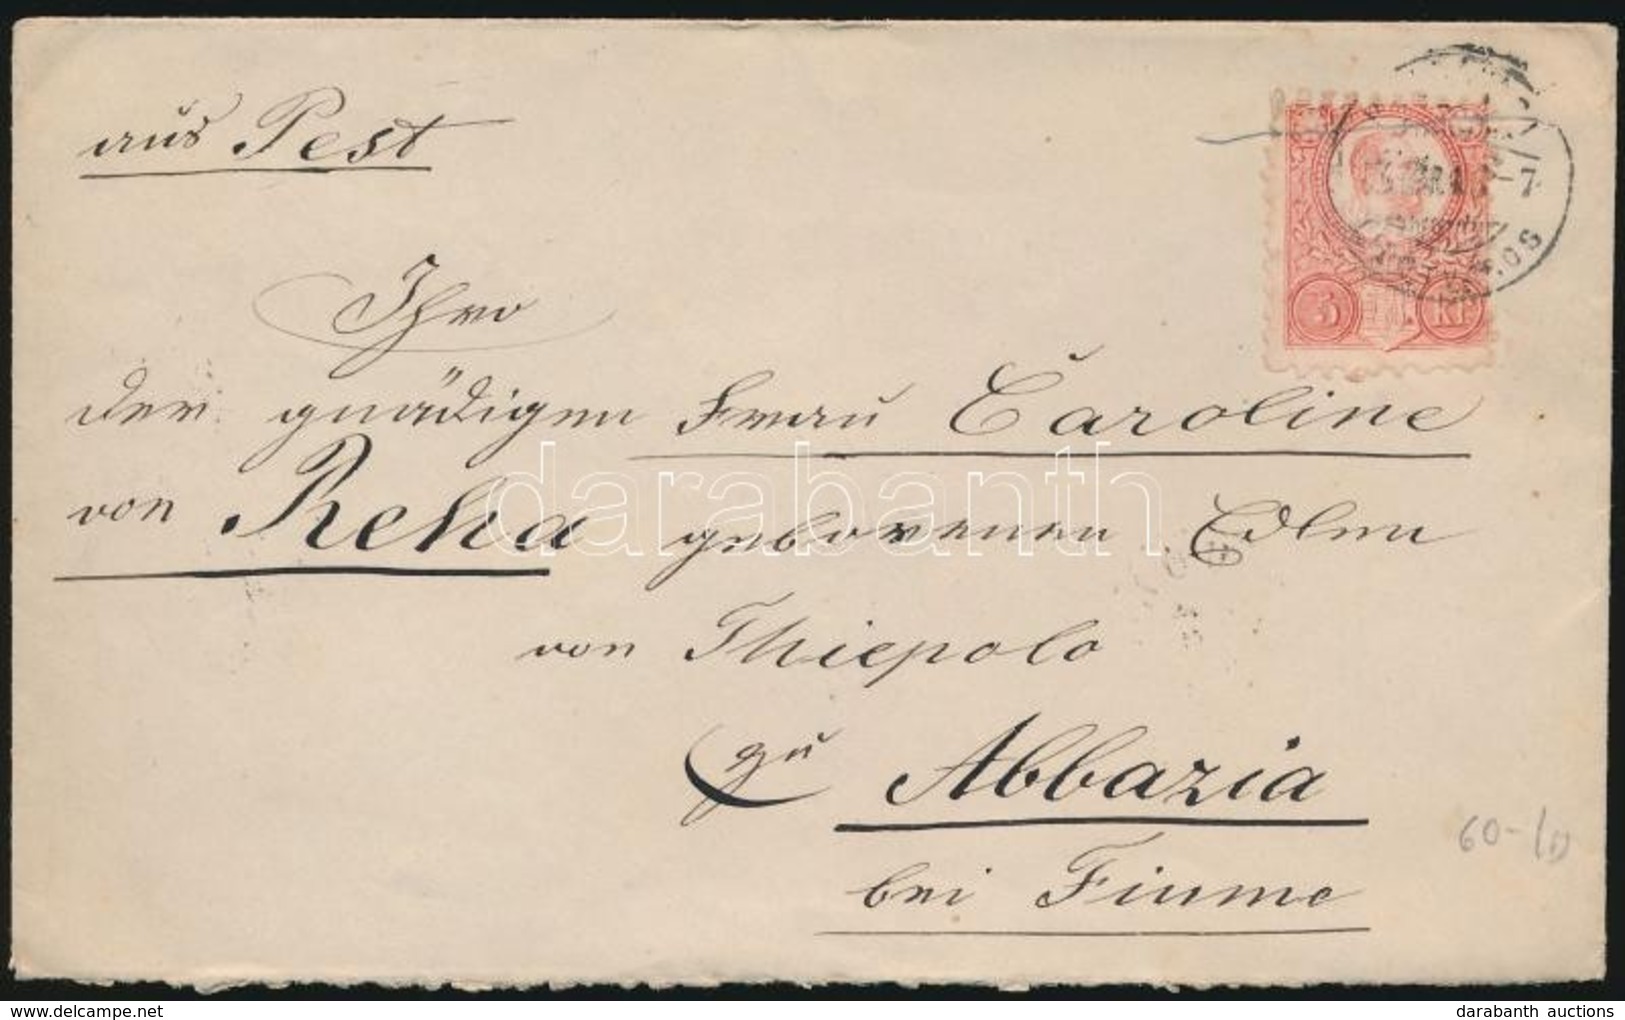 aus Pest
Ihro
der gnädigen Frau Caroline
von Reha geborenen Edlen
von Thiepolo
zu Abbazia
bei Fiume
5 Kr
7
60-
darabanth
darabanth auctions